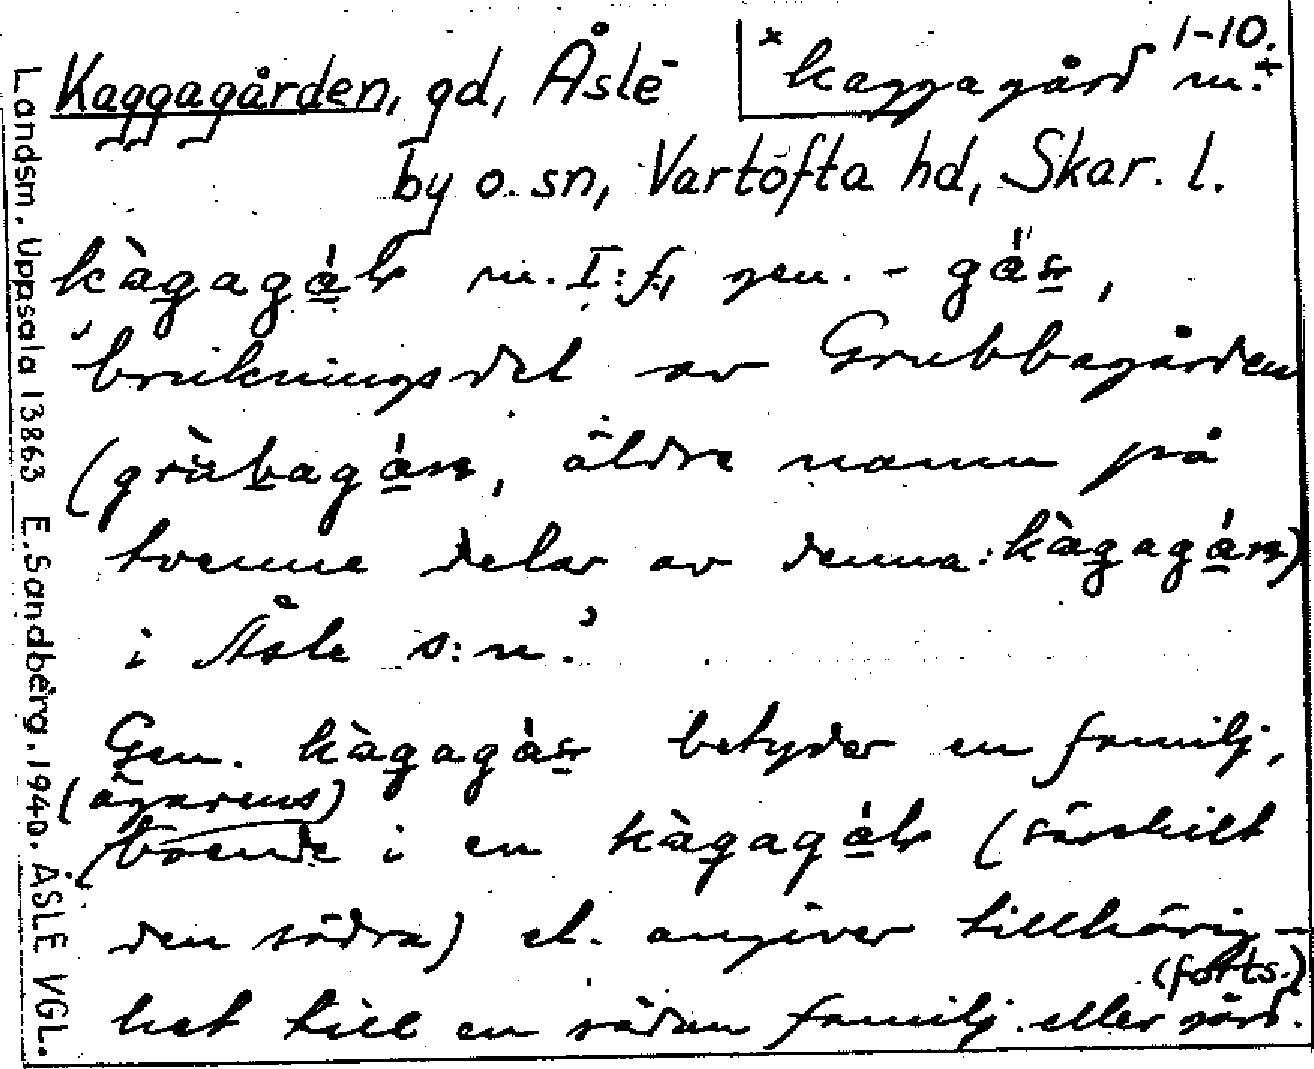 1-10.
Kaggagården, gd, Åsle * kaggagård m.+
by o. sn, Vartofta hd, Skar. l.
kàgagá m. I:f, gen. - gás,
brukningsdel av Grubbagården
(gràbagán, äldre namn på
tvenne delar av denna: kàgagán)
i Åsle s:n.
Gen. kàgagás betyder en familj,
(ägarens)
boende i en kàgagá (särskilt
den södra) el. angiver tillhörig-
het till en sådan familj eller gård.
(forts.)
Landsm. Uppsala 13863 E. Sandberg. 1940. ÅSLE VGL.